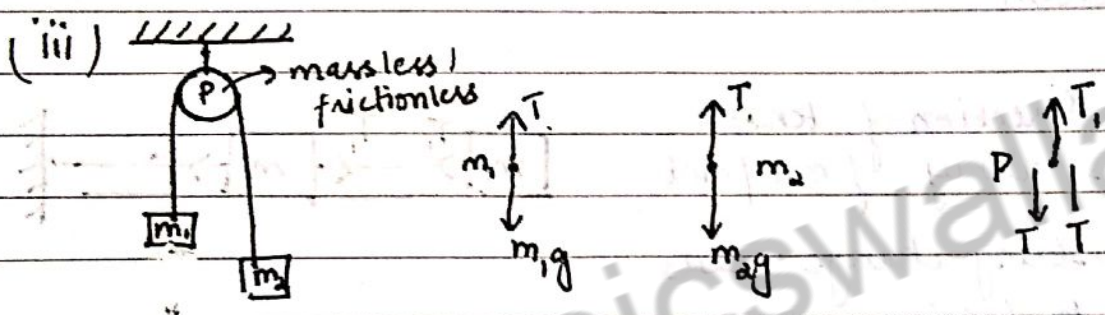 (iii)
P → massless /
frictionless
m₁
m₂
T
m₁
m₁g
T
m₂
m₂g
T₁
P
T T